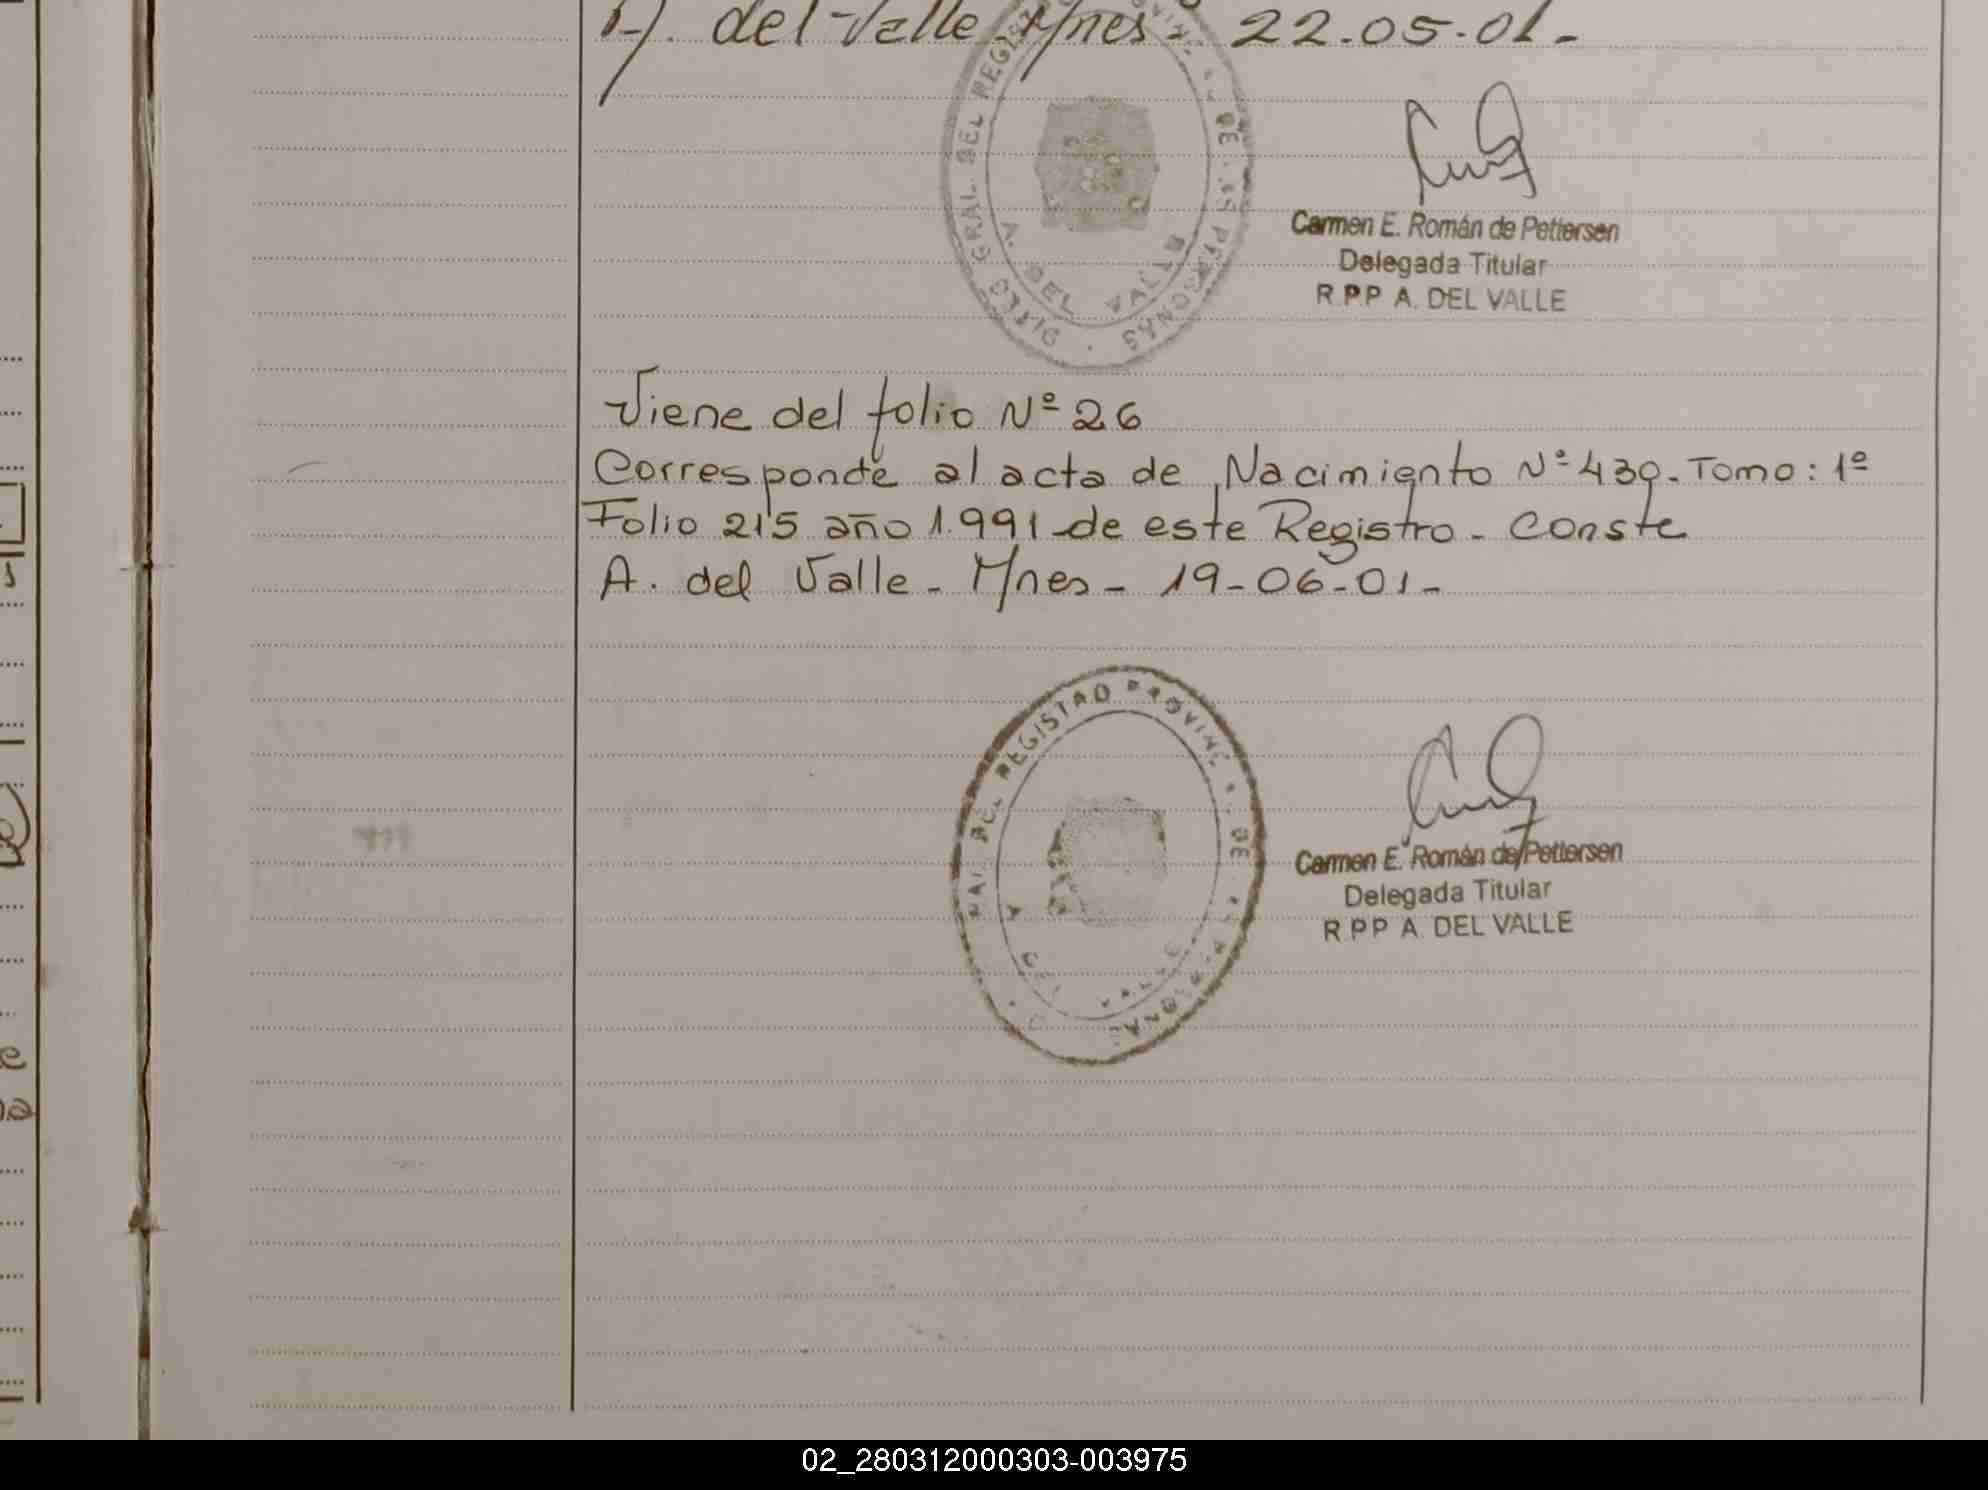 A. del Valle Mnes. 22.05.01.-
DIREC. GRAL. DEL REGISTRO PROVINC. DE LAS PERSONAS
A. DEL VALLE
Carmen E. Román de Pettersen
Delegada Titular
R.P.P A. DEL VALLE
Viene del folio Nº 26
Corresponde al acta de Nacimiento Nº 430. Tomo: 1º
Folio 215 año 1.991 de este Registro - Conste
A. del Valle - Mnes - 19-06-01-
RAL. DEL REGISTRO PROVINC. DE
A. DEL VALLE
Carmen E. Román de Pettersen
Delegada Titular
R.P.P A. DEL VALLE
02_280312000303-003975